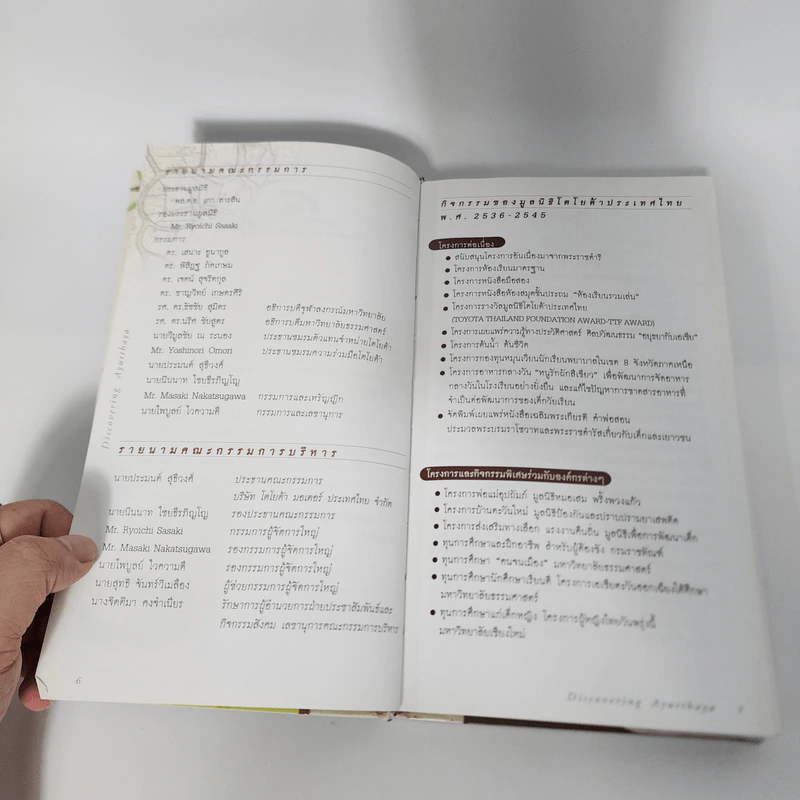 รายนามคณะกรรมการ
ประธานมูลนิธิ
พล.ต.อ. เภา สารสิน
รองประธานมูลนิธิ
Mr. Ryoichi Sasaki
กรรมการ
ดร. เสนาะ อูนากูล
ดร. พิสิฏฐ ภัคเกษม
ดร. เจตน์ สุจริตกุล
ดร. ชาญวิทย์ เกษตรศิริ
รศ. ดร.ธัชชัย สุมิตร อธิการบดีจุฬาลงกรณ์มหาวิทยาลัย
รศ. ดร.นริศ ชัยสูตร อธิการบดีมหาวิทยาลัยธรรมศาสตร์
นายวิบูลชัย ณ ระนอง ประธานชมรมตัวแทนจำหน่ายโตโยต้า
Mr. Yoshinori Omori ประธานชมรมความร่วมมือโตโยต้า
นายประมนต์ สุธีวงศ์
นายนินนาท ไชยธีรภิญโญ
Mr. Masaki Nakatsugawa กรรมการและเหรัญญิก
นายไพบูลย์ ไวความดี กรรมการและเลขานุการ
Discovering Ayutthaya
รายนามคณะกรรมการบริหาร
นายประมนต์ สุธีวงศ์ ประธานคณะกรรมการ
บริษัท โตโยต้า มอเตอร์ ประเทศไทย จำกัด
นายนินนาท ไชยธีรภิญโญ รองประธานคณะกรรมการ
Mr. Ryoichi Sasaki กรรมการผู้จัดการใหญ่
Mr. Masaki Nakatsugawa รองกรรมการผู้จัดการใหญ่
นายไพบูลย์ ไวความดี รองกรรมการผู้จัดการใหญ่
นายสุทธิ จันทร์วิเมลือง ผู้ช่วยกรรมการผู้จัดการใหญ่
นางจิตติมา คงจำเนียร รักษาการผู้อำนวยการฝ่ายประชาสัมพันธ์และ
กิจกรรมสังคม เลขานุการคณะกรรมการบริหาร
6
กิจกรรมของมูลนิธิโตโยต้าประเทศไทย
พ.ศ. 2536-2545
โครงการต่อเนื่อง
• สนับสนุนโครงการอันเนื่องมาจากพระราชดำริ
• โครงการห้องเรียนมาตรฐาน
• โครงการหนังสือมือสอง
• โครงการหนังสือห้องสมุดชั้นประถม "ห้องเรียนรวมเล่น"
• โครงการรางวัลมูลนิธิโตโยต้าประเทศไทย
(TOYOTA THAILAND FOUNDATION AWARD-TTF AWARD)
• โครงการเผยแพร่ความรู้ทางประวัติศาสตร์ ศิลปวัฒนธรรม "อยุธยากับเอเชีย"
• โครงการต้นน้ำ ต้นชีวิต
• โครงการกองทุนหมุนเวียนนักเรียนพยาบาลในเขต 8 จังหวัดภาคเหนือ
• โครงการอาหารกลางวัน "หนูรักผักสีเขียว" เพื่อพัฒนาการจัดอาหาร
กลางวันในโรงเรียนอย่างยั่งยืน และแก้ไขปัญหาการขาดสารอาหารที่
จำเป็นต่อพัฒนาการของเด็กวัยเรียน
• จัดพิมพ์เผยแพร่หนังสือเฉลิมพระเกียรติ คำพ่อสอน
ประมวลพระบรมราโชวาทและพระราชดำรัสเกี่ยวกับเด็กและเยาวชน
โครงการและกิจกรรมพิเศษร่วมกับองค์กรต่างๆ
• โครงการพ่อแม่อุปถัมภ์ มูลนิธิหมอเสม พริ้งพวงแก้ว
• โครงการบ้านตะวันใหม่ มูลนิธิป้องกันและปราบปรามยาเสพติด
• โครงการส่งเสริมทางเลือก แรงงานคืนถิ่น มูลนิธิเพื่อการพัฒนาเด็ก
• ทุนการศึกษาและฝึกอาชีพ สำหรับผู้ต้องขัง กรมราชทัณฑ์
• ทุนการศึกษา "คนจนเมือง" มหาวิทยาลัยธรรมศาสตร์
• ทุนการศึกษานักศึกษาเรียนดี โครงการเอเชียตะวันออกเฉียงใต้ศึกษา
มหาวิทยาลัยธรรมศาสตร์
• ทุนการศึกษาแก่เด็กหญิง โครงการผู้หญิงไทยวันพรุ่งนี้
มหาวิทยาลัยเชียงใหม่
Discovering Ayutthaya